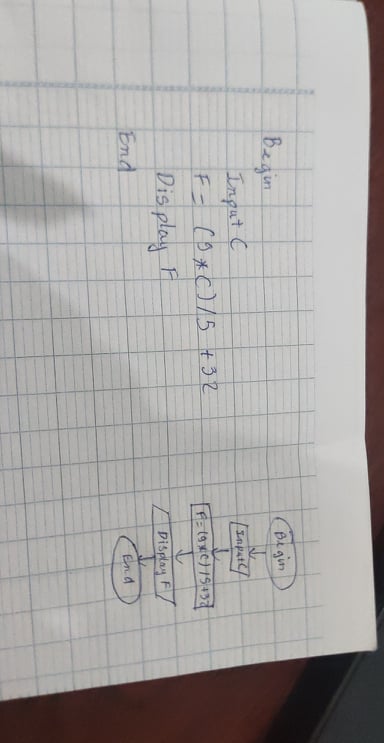 Begin
Input C
F = (9*C)/5 + 32
Display F
End
Begin
Input C
F = (9*C)/5+32
Display F
End